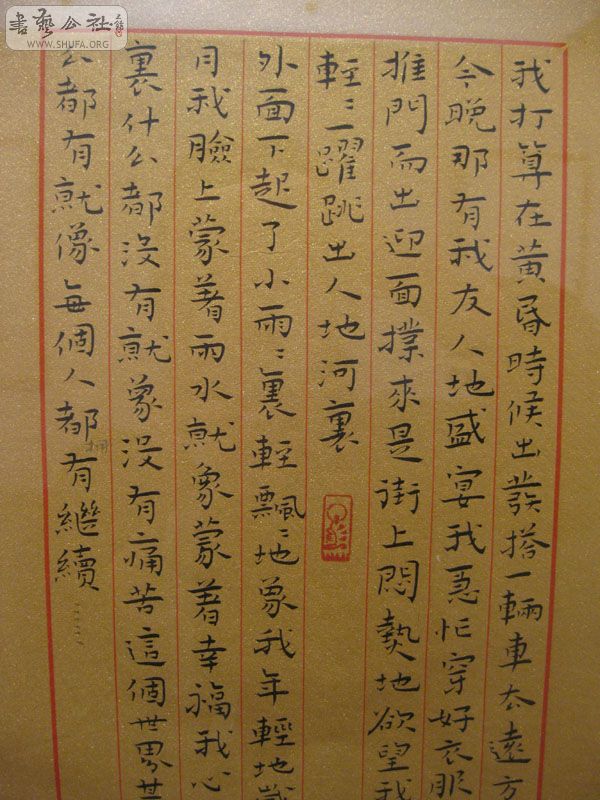 書藝公社
WWW.SHUFA.ORG
我打算在黃昏時候出發搭一輛車去遠方
今晚那有我友人地盛宴我急忙穿好衣服
推門而出迎面撲來是街上悶熱地欲望我
輕〻一躍跳出人地河裏
外面下起了小雨〻裏輕飄〻地象我年輕地歲
月我臉上蒙着雨水就象蒙着幸福我心
裏什么都没有就象没有痛苦這個世界甚
么都有就像每個人都拥有繼續……